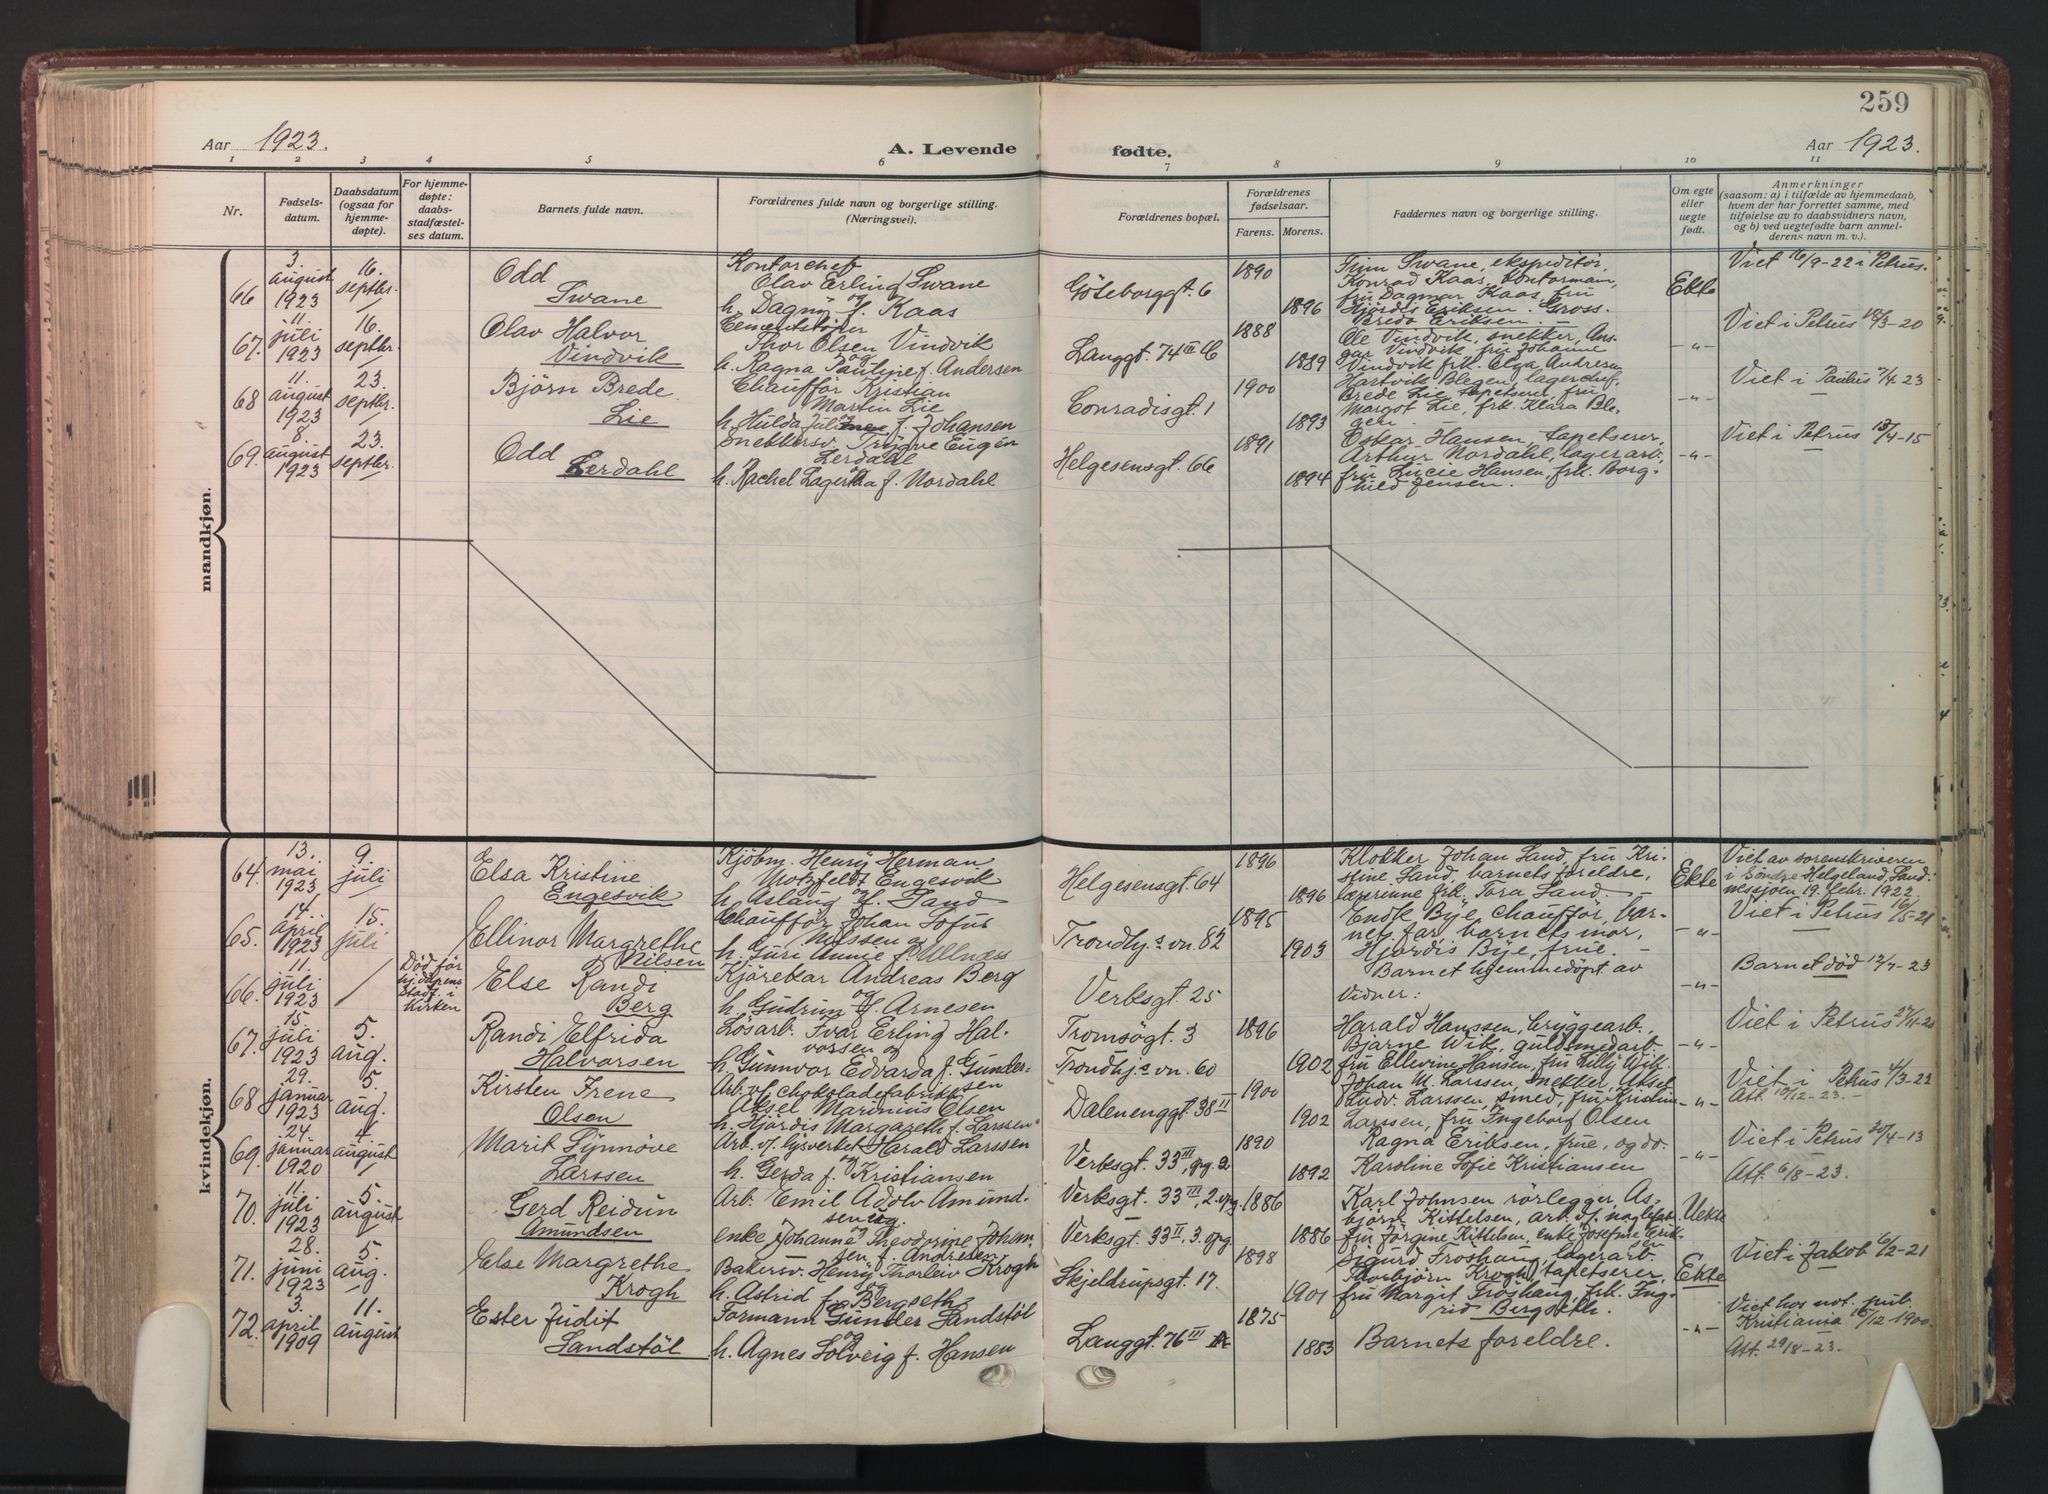 259
Aar 1923.
A. Levende
fødte.
Aar 1923.
1 2 3 4 5 6 7 8 9 10 11
Nr.
Fødselsdatum.
Daabsdatum (ogsaa for hjemmedøpte).
For hjemmedøpte: daabsstadfæstelses datum.
Barnets fulde navn.
Forældrenes fulde navn og borgerlige stilling. (Næringsvei).
Forældrenes bopæl.
Forældrenes fødselsaar.
Farens. Morens.
Faddernes navn og borgerlige stilling.
Om egte eller uegte født.
Anmerkninger
(saasom: a) i tilfælde av hjemmedaab, hvem der har forrettet samme, med tilføielse av to daabsvidners navn, og b) ved uegtefødte barn anmelderens navn m. v.).
mandkjøn.
66 3. august 1923 16. septbr. Odd Swane
Kontorchef Olav Erling Swane og h. Dagny f. Kaas
Göteborggt. 6 1890 1896
Finn Swane, ekspeditör, Konrad Kaas, kontormann, fru Dagmar Kaas, fru Hjördis Eriksen. Gross. Bredo Eriksen
Ekte
Viet 16/9-22 i Petrus.
67. 11. juli 1923 16. septbr. Olav Halvor Vindvik
Cementstöper Thor Olsen Vindvik og h. Ragna Pauline f. Andersen
Langgt. 74 III b 1888 1889
Ole Vindvik, snekker, Ansgar Vindvik, fru Johanne Vindvik frk. Olga Andresen
-"-
Viet i Petrus 14/3-20
68 11. august 1923 23. septbr. Björn Brede Lie
Chauffør Kristian Martin Lie og h. Hulda f. Johansen
Conradisgt. 1 1900 1893
Hartvik Blegen, lagerchef. Brede Lie, tapetserer, fru Margot Lie, frk. Klara Blegen.
-"-
Viet i Paulus 7/4 23
69. 8. august 1923 23. septbr. Odd Lerdahl
Snekkersv. Trygve Eugén Lerdahl og h. Rachel Lagertha f. Nordahl
Helgesensgt. 66 1891 1894
Oskar Hansen, tapetserer, Arthur Nordahl, lagerarb. fru Lucie Hansen, frk. Borghild Jensen.
-"-
Viet i Petrus 13/4-15
kvindekjøn.
64. 13. mai 1923 9. juli Elsa Kristine Engesvik
Kjöbm. Henry Herman Motzfeldt Engesvik og h. Aslaug f. Sand
Helgesensgt. 64 1896 1896
Klokker Johan Sand, fru Kristine Sand, barnets foreldre, lærerinne frk. Tora Sand.
Ekte
Viet av sorenskriveren i Söndre Helgeland, Sandnessjøen 19. febr. 1922
65. 14. april 1923 15. juli Ellinor Margrethe Nilsen
Chauffør Johan Sofus Nilssen og h. Guri Annie f. Ullnæss
Trondhj.s vn. 82 1895 1903
Endk Bye, chauffør, barnets far, barnets mor, Hjördis Bye, frue.
-"-
Viet i Petrus 16/5-21
66. 11. juli 1923 / Död før hj.dåpens stadf. i kirken Else Randi Berg
Kjörekar Andreas Berg og h. Gudrun f. Arnesen
Verksgt. 25
Barnet hjemmedöpt av
Vidner:
-"-
Barnet död 12/7-23
67. 15. juli 1923 5. aug. Randi Elfrida Halvorsen
Lösarb. Ivar Erling Halvorssen og h. Gunnvor Edvarda f. Gundersen
Tromsögt. 3
Trondhj.s vn. 60 1896 1902
Harald Hanssen, bryggearb., Bjarne Wik, guldsmedarb. fru Ellevine Hansen, fru Lilly Wik.
-"-
Viet i Petrus 27/11-20
68 29. januar 1923 5. aug. Kirsten Irene Olsen
Arb. v/ chokoladefabrikk Aksel Marinius Olsen h. Hjördis Margareth f. Larssen
Dalenenggt. 38 II 1900 1902
Johan M. Larssen, snekker, Aksel Ludv. Larssen, smed, fru Kristine Larssen, fru Ingeborg Olsen
-"-
Viet i Petrus 4/3-22
Att. 10/12-23.
69. 24. januar 1920 4. august Marit Synnöve Larssen
Arb. v/ lysverket Harald Larssen og h. Gerda f. Kristiansen
Verksgt. 33 III, opg. 2 1890 1892
Ragna Eriksen, frue, og do. Karoline Sofie Kristiansen
-"-
Viet i Petrus 20/4-13
Att. 6/8-23.
70. 11. juli 1923 5. august Gerd Reidun Amundsen
Arb. Emil Adolv Amundsen og enke Johanne Theodorine Johansen f. Andresen
Verksgt. 33 III, 2. opg.
Verksgt. 33 II, 3. opg. 1886 1886
Karl Johnsen rörlegger, Asbjörn Kittelsen, arb. v/ naglefabr. fru Jörgine Kittelsen, enke Josefine Eriksen
Uekte
71. 28. juni 1923 5. aug. Else Margrethe Krogh
Bakersv. Henry Thorleiv Krogh og h. Astrid f. Bergseth
Skjeldrupsgt. 17. 1898 1901
Sigurd Froshaug, lagerarb. Thorbjörn Krogh, tapetserer, fru Margit Fröshaug, frk. Ingrid Bergseth.
Ekte
Viet i Jakob 6/2-21
72. 3. april 1909 11. august Ester Judit Sandstöl
Formann Gunder Sandstöl og h. Agnes Solveig f. Hansen
Langgt. 76 III 1875 1883
Barnets foreldre.
-"-
Viet hos not. pub. Kristiania 15/12-1900.
Att. 29/8-23.